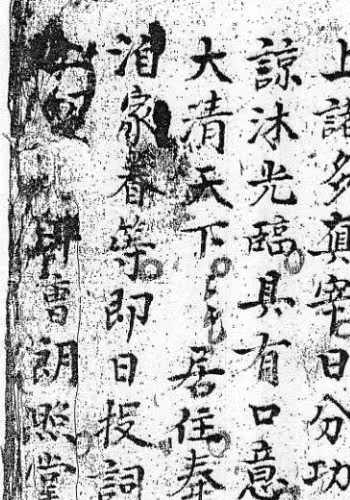 上諸多真宰日分功
諒沐光臨具有口意
大清天下 居住奉
洎家眷等即日投詞
曹朗照堂